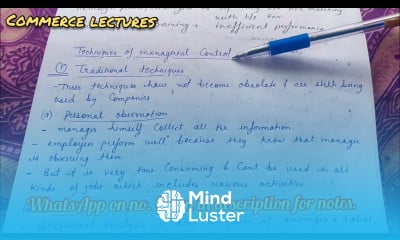 COMMERCE LECTURES
with b/s env.
training → inefficient performance
Techniques of managerial Control
① Traditional techniques
- These techniques have not become obsolete & are still being
used by Companies
(a) Personal observation
- manager himself Collect all the information
- employees perform well because they know that manager
is observing them
- But it is very time Consuming & Cant be used in all
kinds of jobs which includes various activities.
WhatsApp on no. description for notes.
Mind
Luster